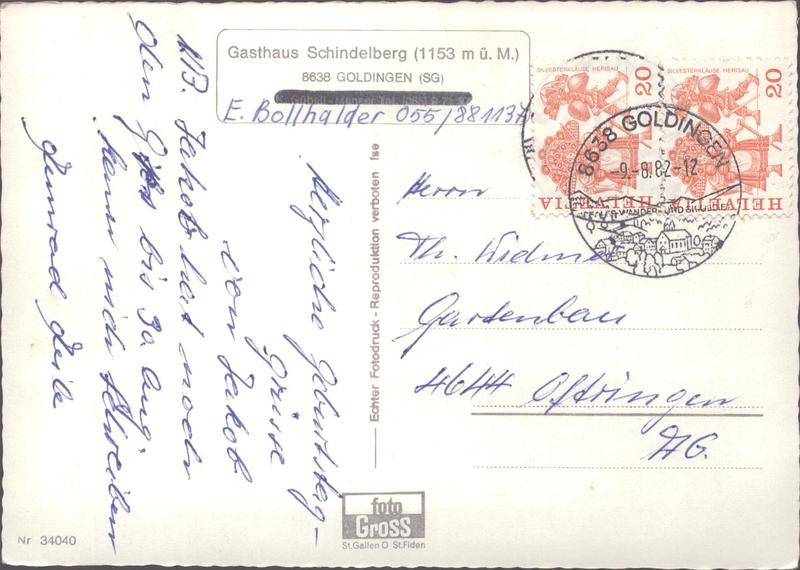 Gasthaus Schindelberg (1153 m ü. M.)
8638 GOLDINGEN (SG)
E. Bollhalder 055/881137
Herzliche Geburtstag-
Grüsse
von Jakob
NB. Jakob hat noch
bis 30 Aug.
Echter Fotodruck - Reproduktion verboten fse
SILVESTERKLÄUSE HERISAU
20
HELVETIA
SILVESTERKLÄUSE HERISAU
20
HELVETIA
8638 GOLDINGEN
-9.-8.82-12
WANDER- UND
Herrn
Th. Widmer
Gartenbau
4644 Oftringen
AG.
foto
Gross
St.Gallen O St.Fiden
Nr 34040